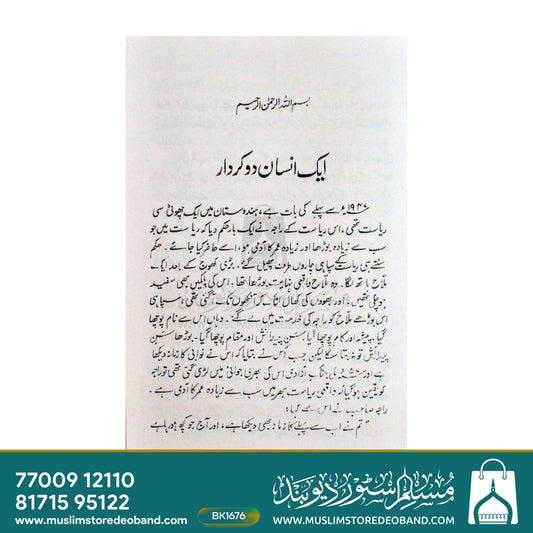 بسم اللہ الرحمٰن الرحیم
ایک انسان دو کردار
۱۹۴۷ء سے پہلے کی بات ہے، ہندوستان میں ایک چھوٹی سی
ریاست تھی۔ اس ریاست کے راجہ نے ایک بار حکم دیا کہ ریاست میں جو
سب سے زیادہ بوڑھا اور زیادہ عمر کا آدمی ہو، اسے حاضر کیا جائے۔ حکم
سنتے ہی ریاست کے سپاہی چاروں طرف پھیل گئے۔ بڑی کھوج کے بعد ایک
ملاح ہاتھ لگا۔ وہ ملاح واقعی نہایت بوڑھا تھا۔ اس کی پلکیں بھی سفید
ہو چکی تھیں۔ اور بھنوؤں کی کھال لٹک کر آنکھوں تک آ گئی تھی، سپاہی
اس بوڑھے ملاح کو راجہ کی خدمت میں لے گئے۔ وہاں اس سے نام پوچھا
گیا، پیشہ اور کام پوچھا گیا، سنِ پیدائش اور مقام پوچھا گیا۔ بوڑھا سنِ
پیدائش تو نہ بتا سکا لیکن جب اس نے بتایا کہ اس نے نوابی کا زمانہ دیکھا
ہے اور کی جنگِ آزادی اس کی بھری جوانی میں لڑی گئی تھی تو راجہ
کو یقین ہو گیا کہ واقعی ریاست بھر میں سب سے زیادہ عمر کا آدمی ہے۔
راجہ صاحب نے اس سے کہا:
"تم نے اب سے پہلے کا زمانہ بھی دیکھا ہے، اور آج جو کچھ ہو رہا ہے
77009 12110
81715 95122
www.muslimstoredeoband.com
BK1676
مسلم سٹور دیوبند
WWW.MUSLIMSTOREDEOBAND.COM